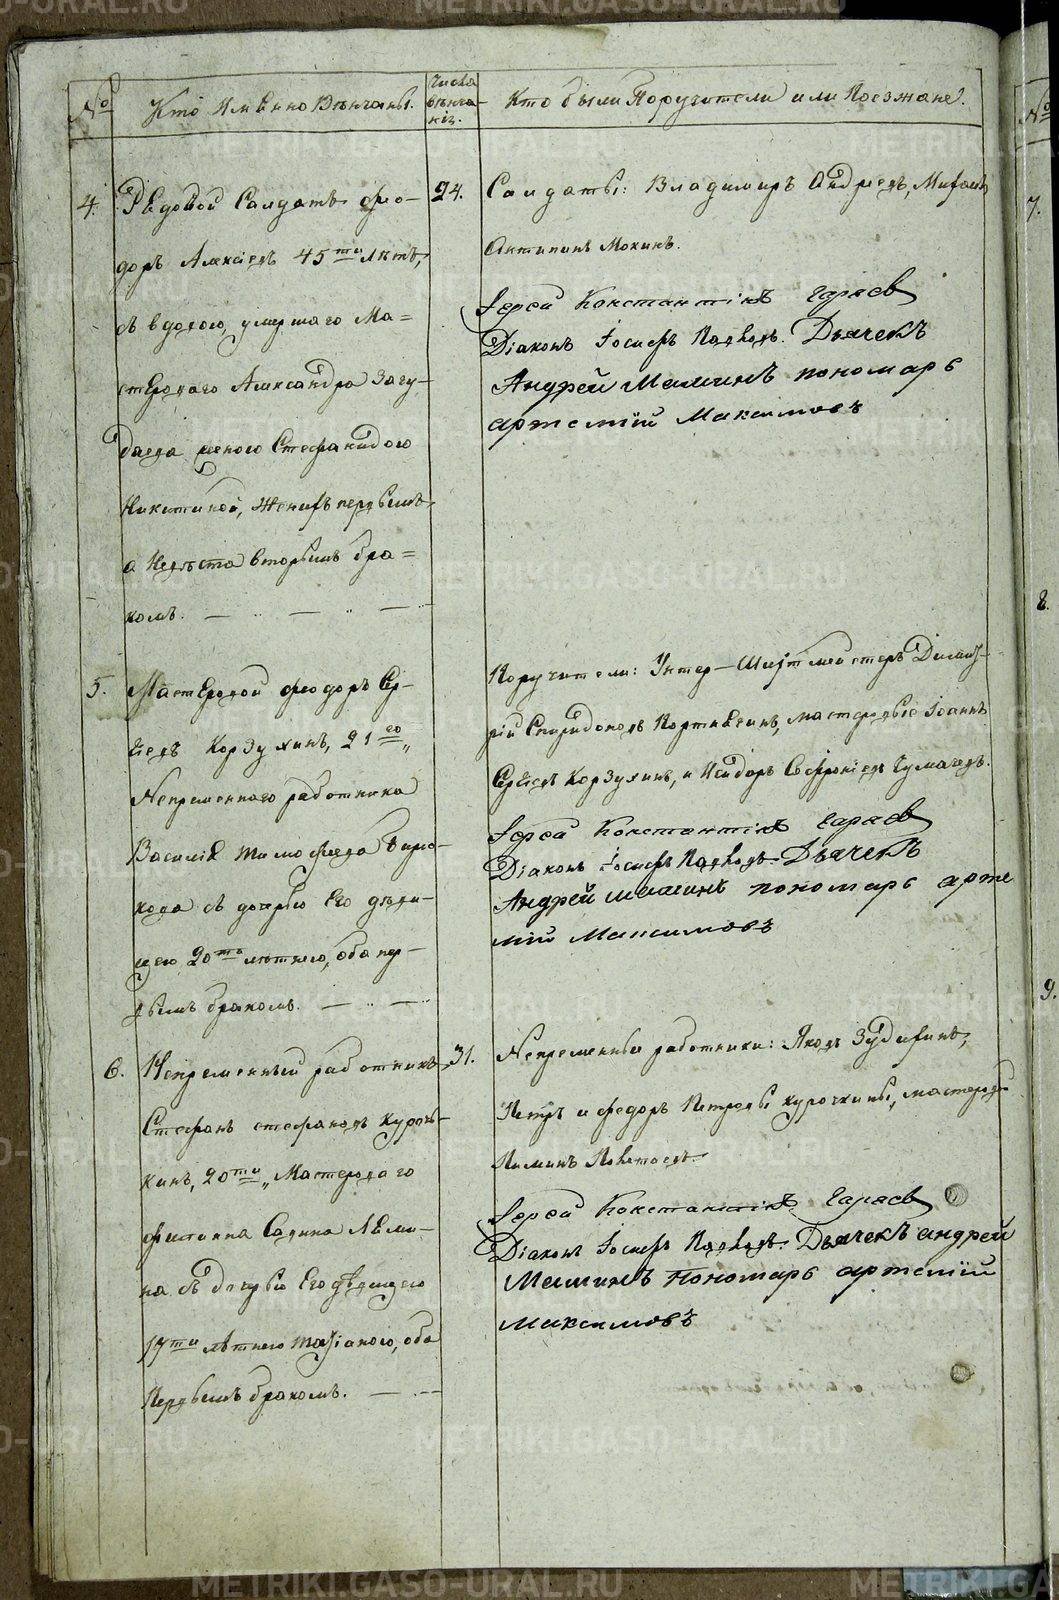 №
Кто Именно Венчаны.
Числа
венча-
нія.
Кто были Поручители или Поезжане.
4.
Рядовой Салдатъ Фео-
доръ Алексеевъ 45ти летъ,
съ вдовою, умершаго Ма=
стероваго Александра
женою Стефанидою
Никитиной, Женихъ первымъ,
а Невеста вторымъ бра=
комъ.
24.
Салдаты: Владимиръ Андреевъ, Михаилъ
Антипинъ Мокинъ.
Іерей Константінъ
Діаконъ Іосифъ Дьячекъ
Андрей Маминъ пономарь
артемій Максимовъ
5.
Мастеровой Феодоръ Сер-
геевъ Корзухинъ, 21го
Непременного работника
Василія Тимофеева
съ дочерью Его деви-
цею 20ти летнею, оба пер-
вымъ бракомъ.
Поручители: Унтер-Шихтмейстеръ Димит-
рій Спиридоновъ мастеровые Іоаннъ
Сергеевъ Корзухинъ, и Исидоръ Софроніевъ Чумачевъ.
Іерей Константінъ
Діаконъ Іосифъ Дьячекъ
Андрей маминъ пономарь арте
мій Максимовъ
6.
Непременный работникъ
Стефанъ стефановъ Куроч-
кинъ, 20ти, Мастероваго
Филиппа Савина
на съ дочерью Его девицею
17ти летнею Татіаною, оба
Первымъ бракомъ.
31.
Непременные работники: Яковъ Зудихинъ,
Петръ и Федоръ Петровы курочкины, мастеровой
Пименъ
Іерей Константінъ
Діаконъ Іосифъ Дьячекъ андрей
Маминъ Пономарь артемій
Максимовъ
№
7.
8.
9.
METRIKI.GASO-URAL.RU